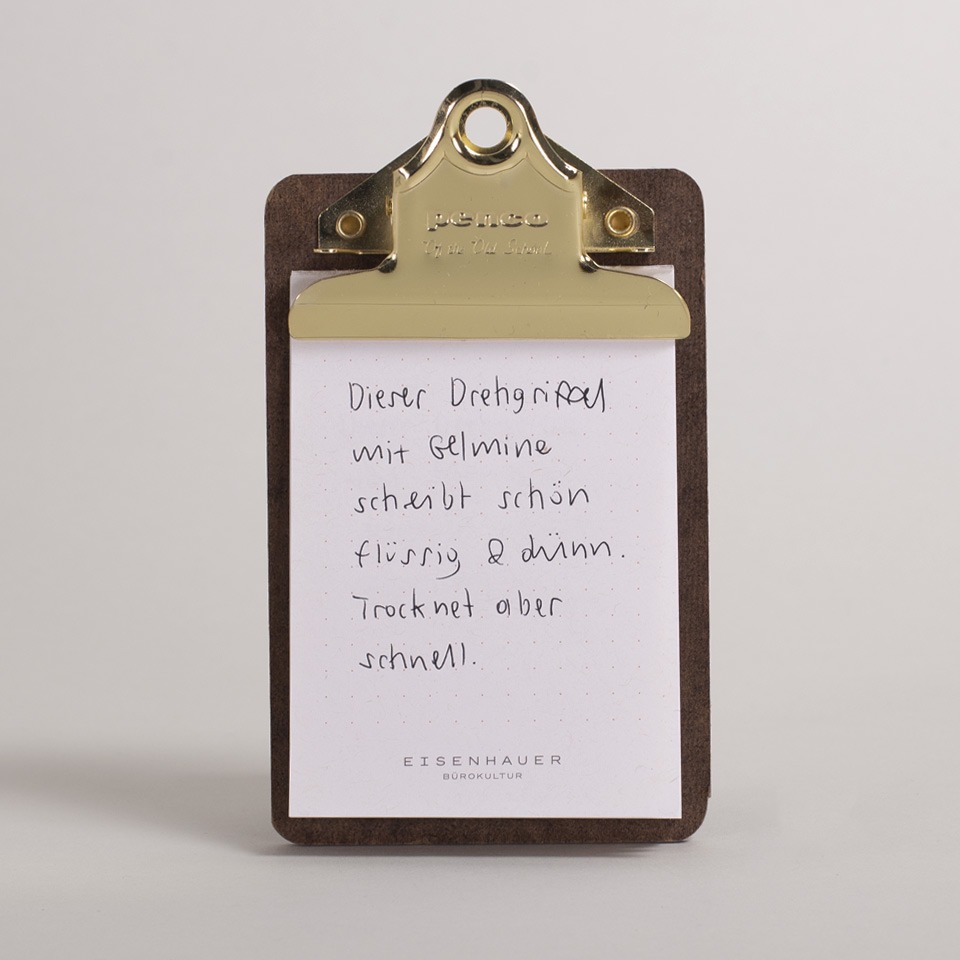 penco
Of the Old School
Dieser Drehgriffel
mit Gelmine
scheibt schön
flüssig & dünn.
Trocknet aber
schnell.
EISENHAUER
BÜROKULTUR